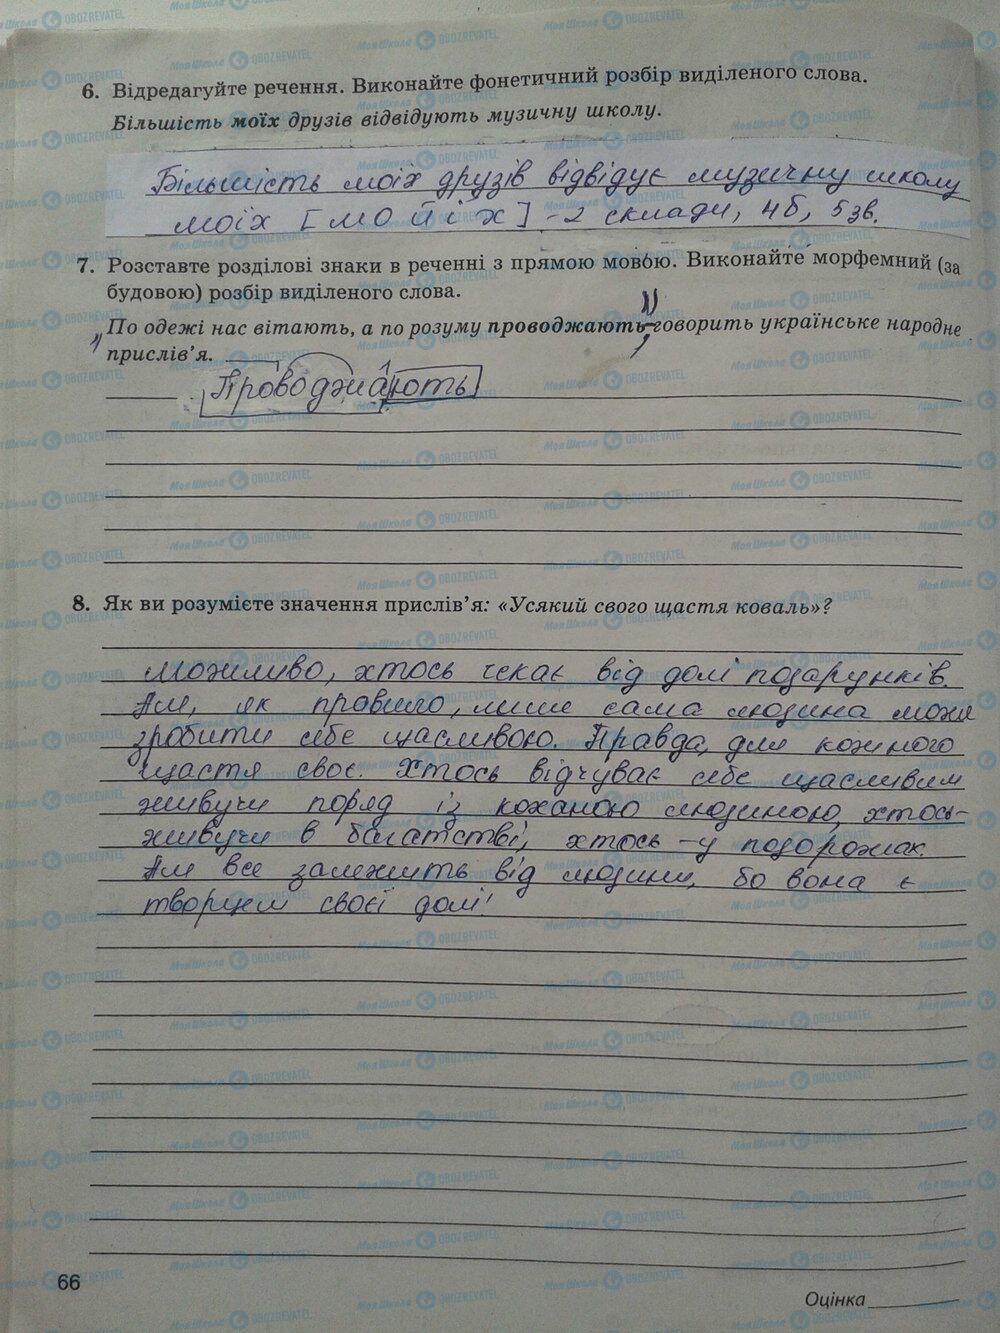 6. Відредагуйте речення. Виконайте фонетичний розбір виділеного слова.
Більшість моїх друзів відвідують музичну школу.
Більшість моїх друзів відвідує музичну школу
моїх [мо й і х] – 2 склади, 4 б, 5 зв.
7. Розставте розділові знаки в реченні з прямою мовою. Виконайте морфемний (за
будовою) розбір виділеного слова.
„По одежі нас вітають, а по розуму проводжають”,- говорить українське народне
прислів’я.
Проводжають
8. Як ви розумієте значення прислів’я: «Усякий свого щастя коваль»?
Можливо, хтось чекає від долі подарунків.
Але, як правило, лише сама людина може
зробити себе щасливою. Правда, для кожного
щастя своє. Хтось відчуває себе щасливим
живучи поряд із коханою людиною, хтось-
живучи в багатстві, хтось – у подорожах.
Але все залежить від людини, бо вона є
творцем своєї долі!
66
Оцінка
МояШкола OBOZREVATEL